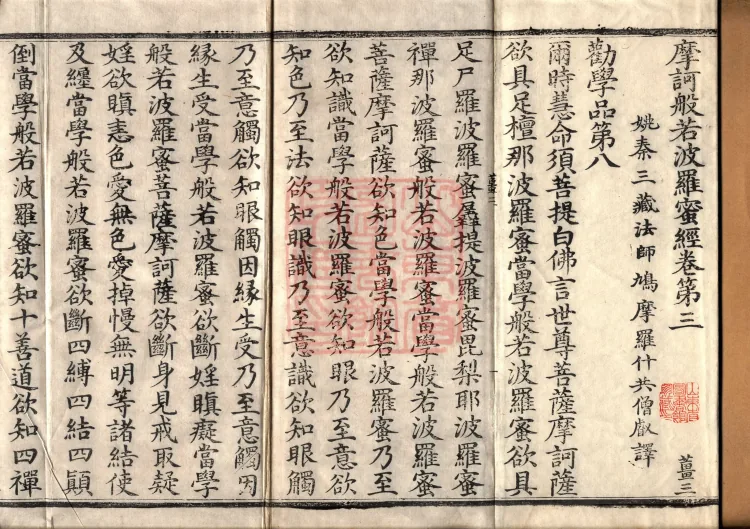 摩訶般若波羅蜜經卷第三
薑三
姚秦三藏法師鳩摩羅什共僧叡譯
勸學品第八
爾時慧命須菩提白佛言世尊菩薩摩訶薩
欲具足檀那波羅蜜當學般若波羅蜜欲具
足尸羅波羅蜜羼提波羅蜜毘梨耶波羅蜜
禪那波羅蜜般若波羅蜜當學般若波羅蜜
菩薩摩訶薩欲知色當學般若波羅蜜乃至
欲知識當學般若波羅蜜欲知眼乃至意欲
知色乃至法欲知眼識乃至意識欲知眼觸
乃至意觸欲知眼觸因緣生受乃至意觸因
緣生受當學般若波羅蜜欲斷婬瞋癡當學
般若波羅蜜菩薩摩訶薩欲斷身見戒取疑
婬欲瞋恚色愛無色愛掉慢無明等諸結使
及纏當學般若波羅蜜欲斷四縛四結四顛
倒當學般若波羅蜜欲知十善道欲知四禪